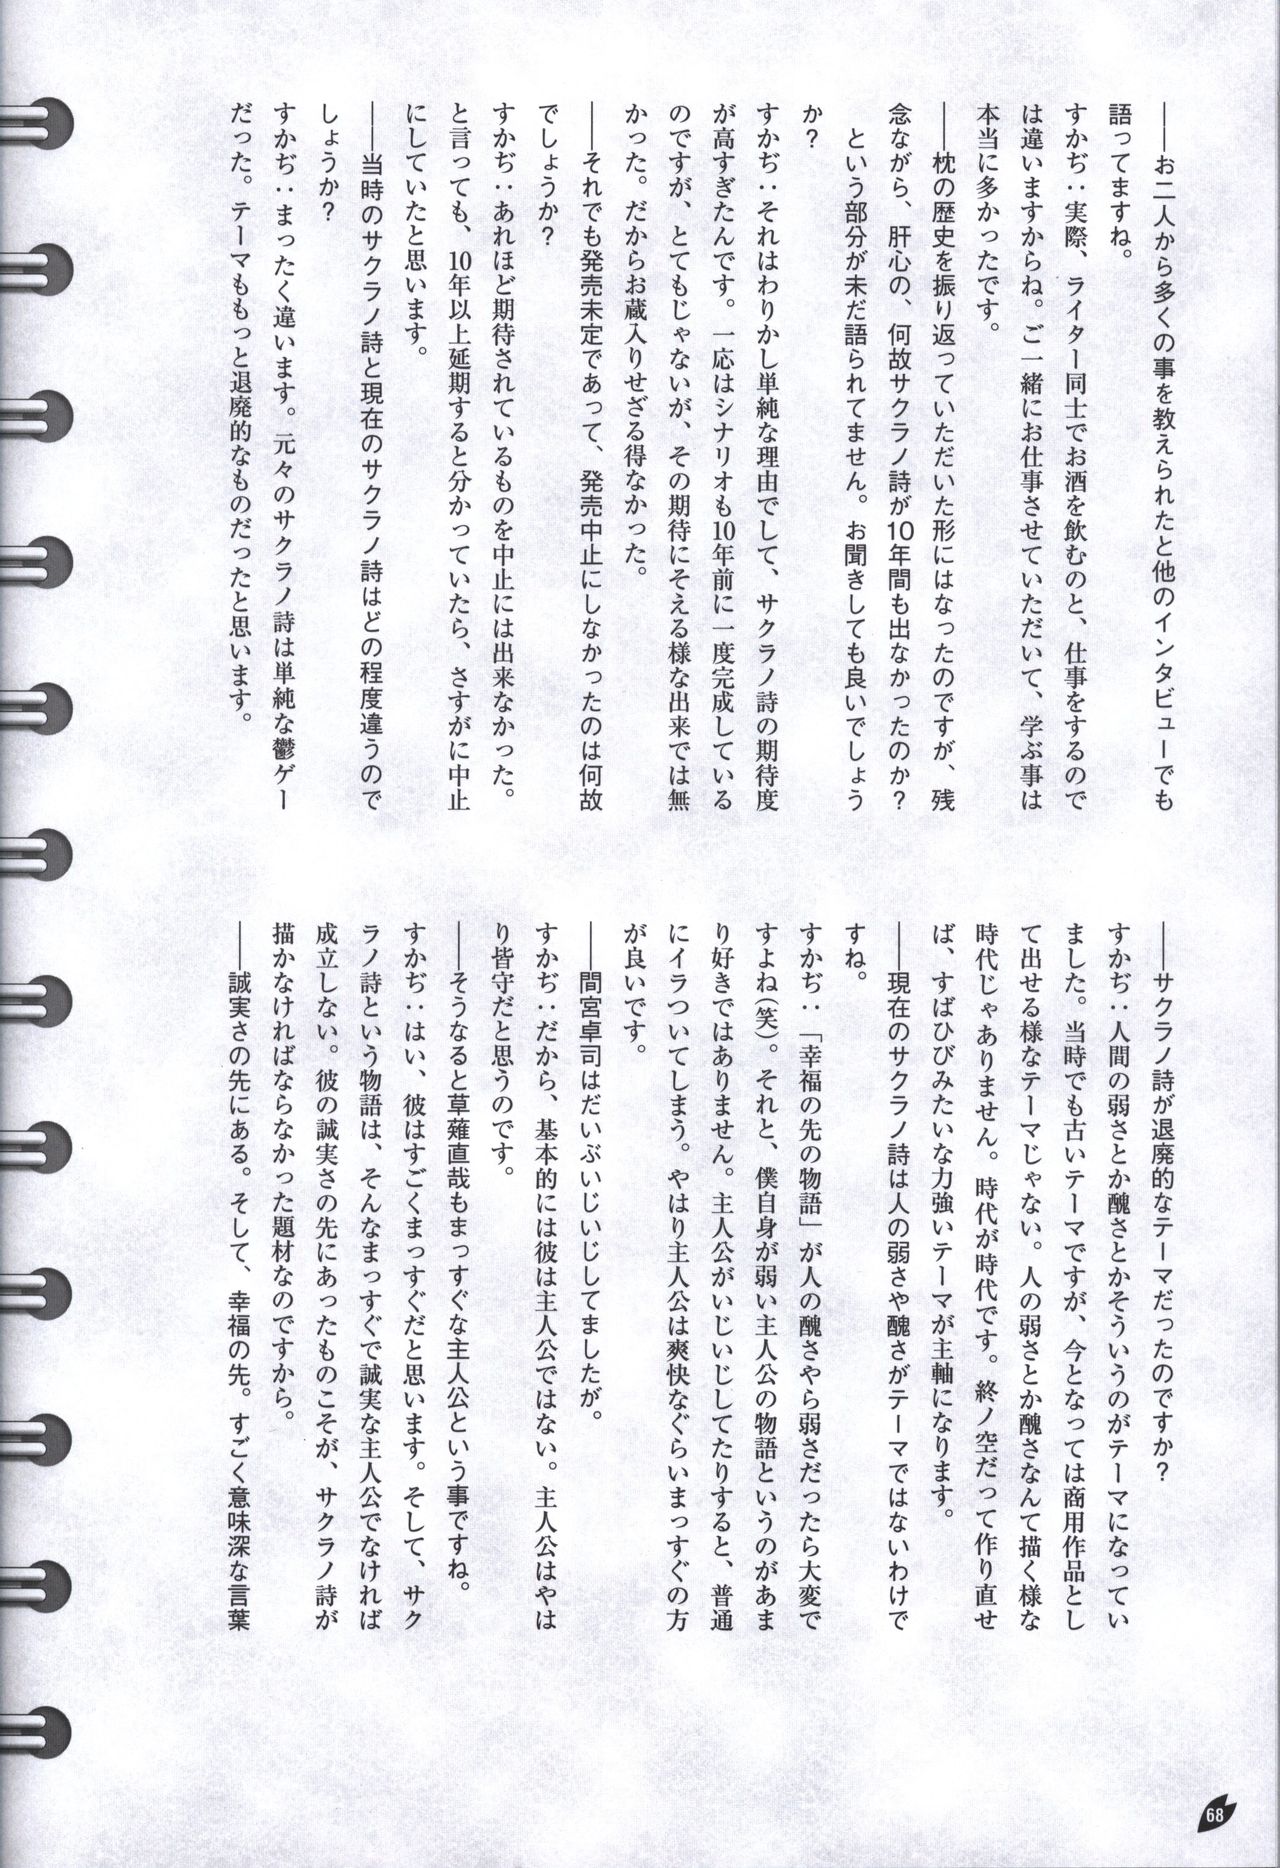 ――お二人から多くの事を教えられたと他のインタビューでも
語ってますね。
すかぢ：実際、ライター同士でお酒を飲むのと、仕事をするので
は違いますからね。ご一緒にお仕事させていただいて、学ぶ事は
本当に多かったです。
――枕の歴史を振り返っていただいた形にはなったのですが、残
念ながら、肝心の、何故サクラノ詩が10年間も出なかったのか？
という部分が未だ語られてません。お聞きしても良いでしょう
か？
すかぢ：それはわりかし単純な理由でして、サクラノ詩の期待度
が高すぎたんです。一応はシナリオも10年前に一度完成している
のですが、とてもじゃないが、その期待にそえる様な出来では無
かった。だからお蔵入りせざる得なかった。
――それでも発売未定であって、発売中止にしなかったのは何故
でしょうか？
すかぢ：あれほど期待されているものを中止には出来なかった。
と言っても、10年以上延期すると分かっていたら、さすがに中止
にしていたと思います。
――当時のサクラノ詩と現在のサクラノ詩はどの程度違うので
しょうか？
すかぢ：まったく違います。元々のサクラノ詩は単純な鬱ゲー
だった。テーマももっと退廃的なものだったと思います。
――サクラノ詩が退廃的なテーマだったのですか？
すかぢ：人間の弱さとか醜さとかそういうのがテーマになってい
ました。当時でも古いテーマですが、今となっては商用作品とし
て出せる様なテーマじゃない。人の弱さとか醜さなんて描く様な
時代じゃありません。時代が時代です。終ノ空だって作り直せ
ば、すばひびみたいな力強いテーマが主軸になります。
――現在のサクラノ詩は人の弱さや醜さがテーマではないわけで
すね。
すかぢ：「幸福の先の物語」が人の醜さやら弱さだったら大変で
すよね（笑）。それと、僕自身が弱い主人公の物語というのがあま
り好きではありません。主人公がいじいじしてたりすると、普通
にイラついてしまう。やはり主人公は爽快なぐらいまっすぐの方
が良いです。
――間宮卓司はだいぶいじいじしてましたが。
すかぢ：だから、基本的には彼は主人公ではない。主人公はやは
り皆守だと思うのです。
――そうなると草薙直哉もまっすぐな主人公という事ですね。
すかぢ：はい、彼はすごくまっすぐだと思います。そして、サク
ラノ詩という物語は、そんなまっすぐで誠実な主人公でなければ
成立しない。彼の誠実さの先にあったものこそが、サクラノ詩が
描かなければならなかった題材なのですから。
――誠実さの先にある。そして、幸福の先。すごく意味深な言葉
68